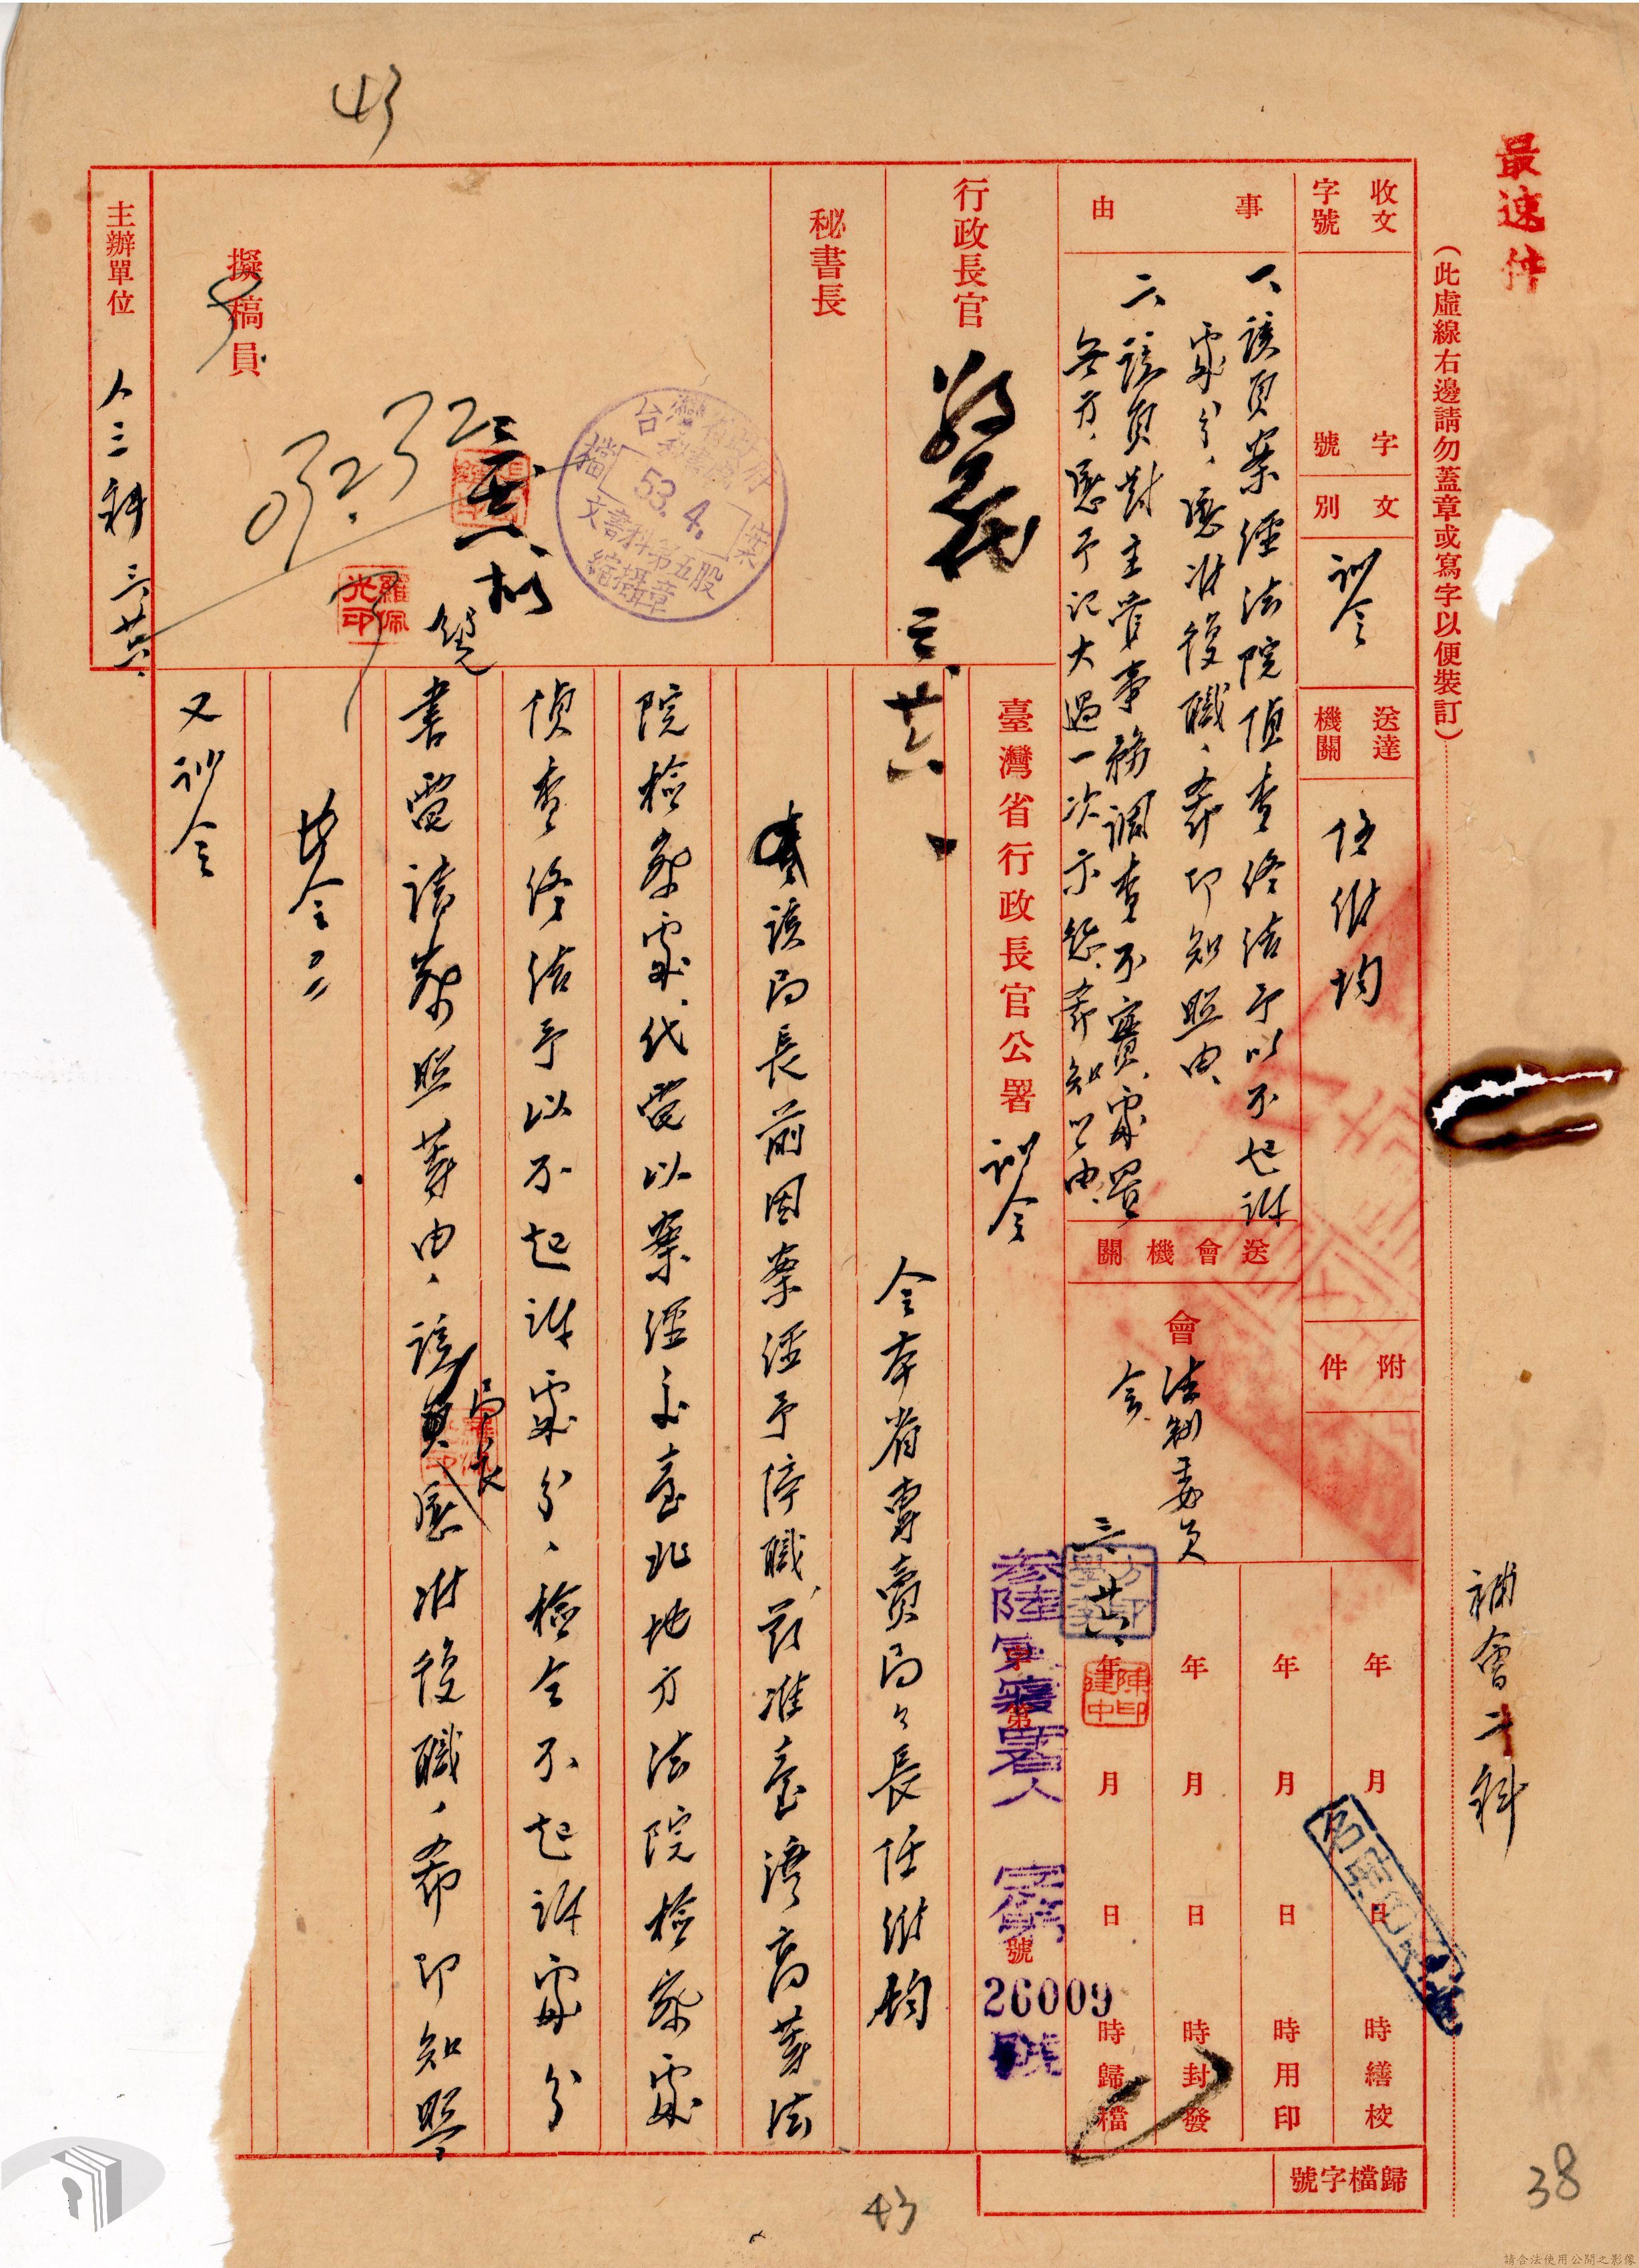 最速件
(此虛線右邊請勿蓋章或寫字以便裝訂)
補會二科
收文
字號
字
號
文
別
訓令
送達
機關
任維均
附
件
事
由
一、該員案經法院偵查終結予以不起訴
處分,應准復職,希即知照由、
二、該員對主管事務調查不實、處置
無方,應予記大過一次示懲、希知照由、
送會機關
會
法制委員
會
三、廿六、
陳印建中
年 月 日 時 繕校
年 月 日 時 用印
年 月 日 時 封發
年 月 日 時 歸檔
行政長官
三、廿六、
秘書長
臺灣省行政長官公署 訓令
參陸寅寢署人 字第
第
號
26009
號
令本省專賣局局長任維均
查該局長前因案經予停職,茲准臺灣高等法
院檢察處代電以案經交臺北地方法院檢察處
偵查終結予以不起訴處分,檢仝不起訴處分
書電請察照等由,該局長應准復職,希即知照
此令〃
又訓令
台灣省政府
秘書處
檔案
53.4.
文書科第五股
縮攝章
羅佩光印
擬稿員
主辦單位
人三科 三、廿六、
歸檔字號
43
43
38
請合法使用公開之影像